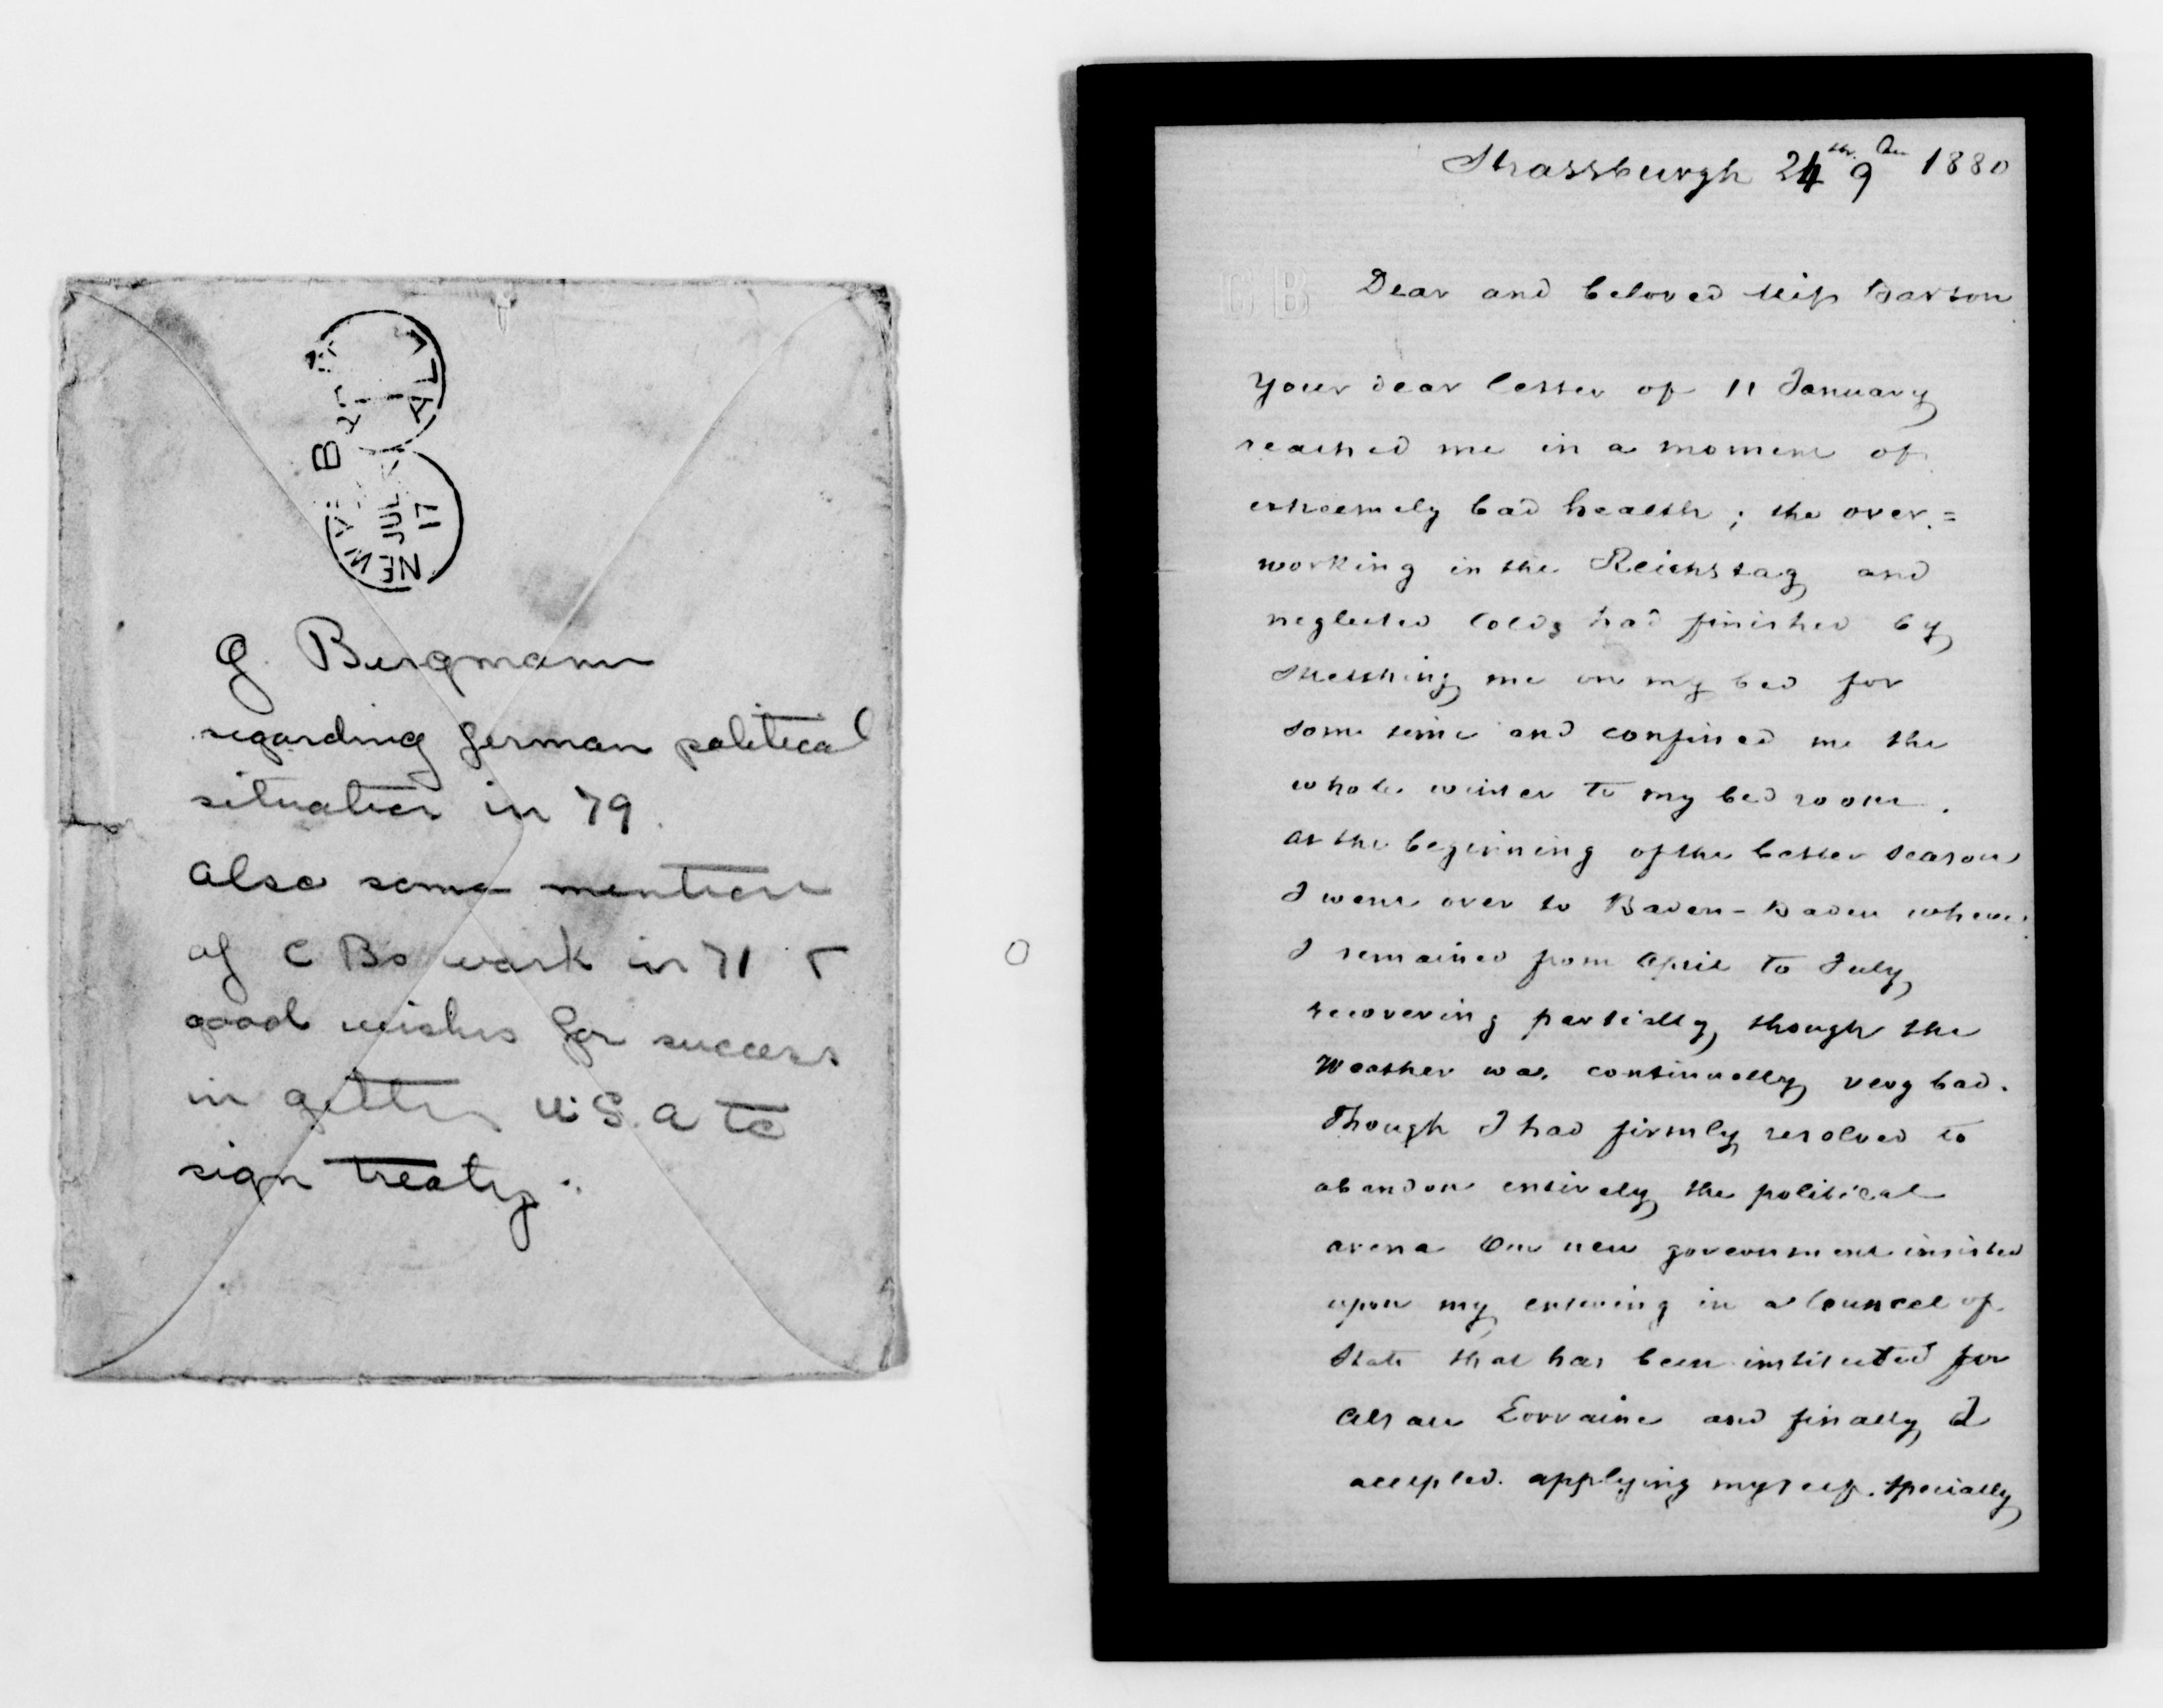 NEW Y
JUL
17
B
ALL
G. Bergmann
regarding German political
situation in 79.
Also some mention
of C Bs work in 71 &
good wishes for success
in getting U.S.A to
sign treaty.
Strassburgh 24th 9 1880
CB
Dear and beloved Miss Barton
Your dear letter of 11 January
reached me in a moment of
extreemely bad health; the over.=
working in the Reichstag and
neglected colds had finished by
stretching me on my bed for
some time and confined me the
whole winter to my bed room.
At the beginning of the better season
I went over to Baden-Baden where
I remained from April to July,
recovering partially, though the
Weather was continually very bad.
Though I had firmly resolved to
abandon entirely the political
arena Our new government insisted
upon my entering in a Councel of
State that has been instituted for
Alsace Lorraine and finally I
accepted. applying myself. specially